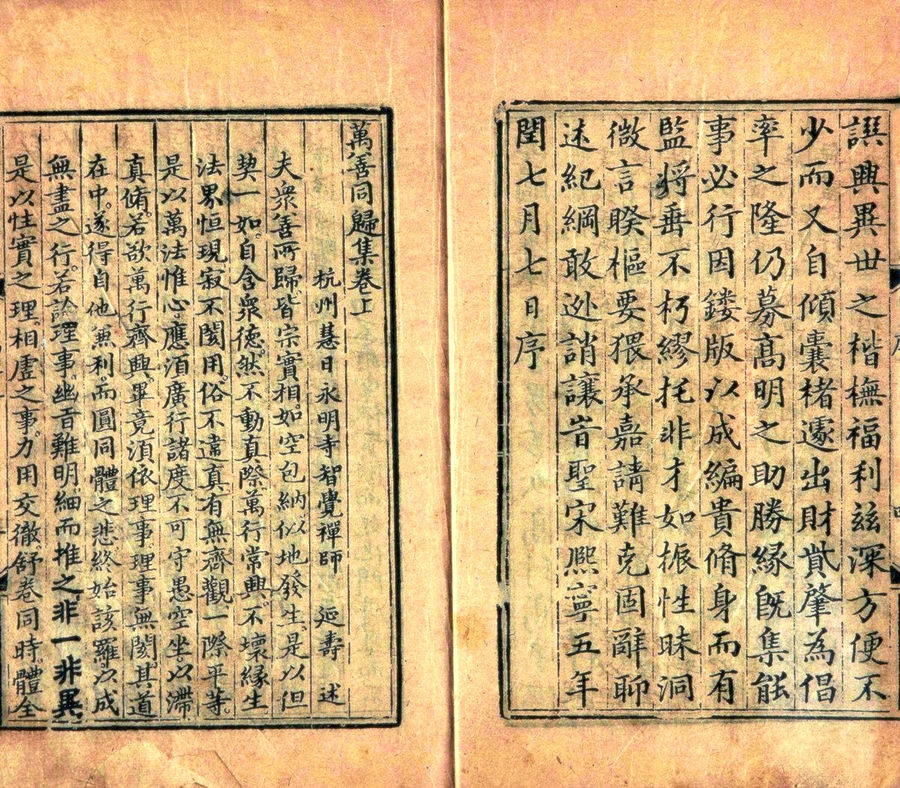 譔興異世之楷橅福利玆深方便不
少而又自傾囊楮遽出財貲肇為倡
率之隆仍募髙明之助勝緣旣集能
事必行因鏤版以成編貴脩身而有
監將垂不朽繆托非才如振性昧洞
微言睽樞要猥承嘉請難克固辭聊
述紀綱敢迯誚讓旹聖宋熈寧五年
閏七月七日序
萬善同歸集卷上
杭州慧日永明寺智覺禪師 延壽 述
夫衆善所歸皆宗實相如空包納似地發生是以但
契一如自含衆德然不動真際萬行常興不壞緣生
法界恒現寂不閡用俗不違真有無齊觀一際平等
是以萬法惟心應須廣行諸度不可守愚空坐以滯
真脩若欲萬行齊興畢竟須依理事理事無閡其道
在中遂得自他兼利而圓同體之悲終始該羅以成
無盡之行若論理事幽旨難明細而推之非一非異
是以性實之理相虛之事力用交徹舒卷同時體全